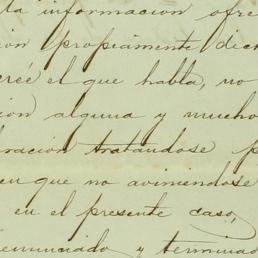 la informacion ofre
ion propiamente dich
creé el que habla, no
cion alguna y mucho
bracion tratandose p
en que no aviniendose
en el presente caso,
enunciado y terminad